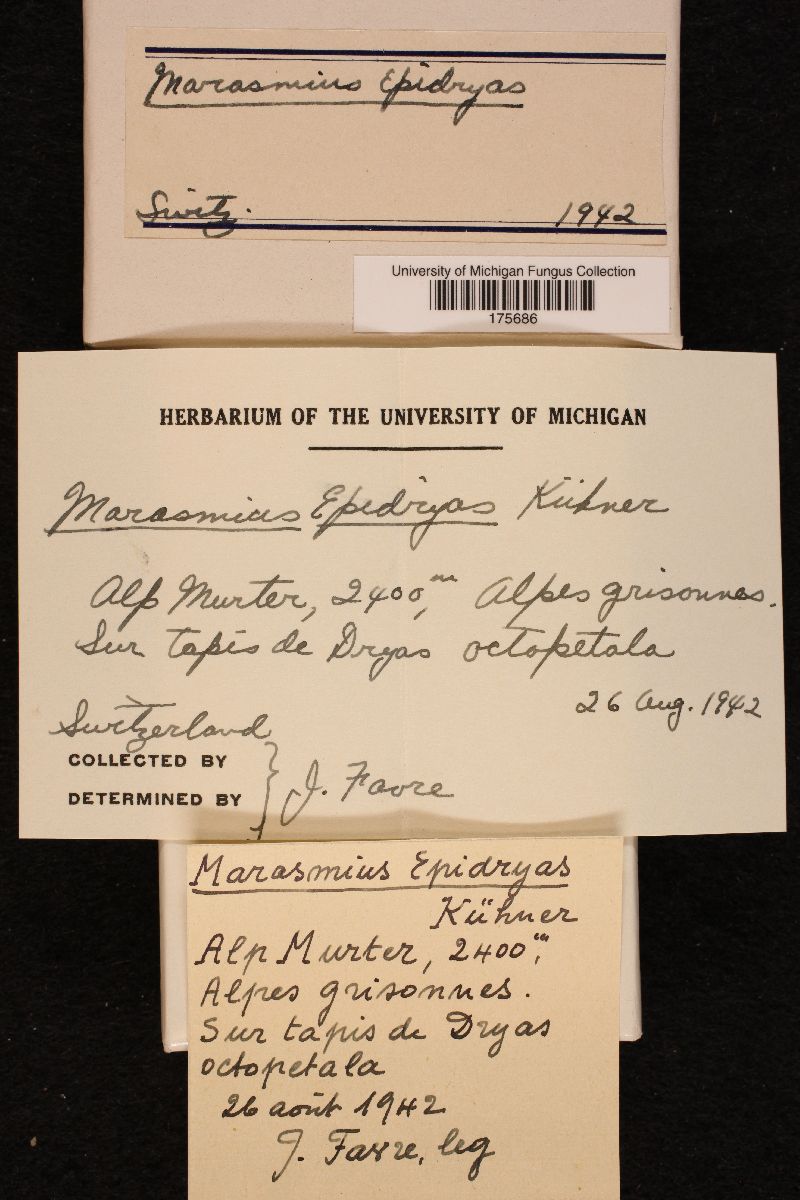 Marasmius Epidryas
Switz. 1942
University of Michigan Fungus Collection
175686
HERBARIUM OF THE UNIVERSITY OF MICHIGAN
Marasmius Epidryas Kühner
Alp Murter, 2400 m, Alpes grisonnes.
Sur tapis de Dryas octopetala
26 Aug. 1942
Switzerland
COLLECTED BY
DETERMINED BY } J. Favre
Marasmius Epidryas
Kühner
Alp Murter, 2400 m,
Alpes grisonnes.
Sur tapis de Dryas
octopetala
26 août 1942
J. Favre, leg